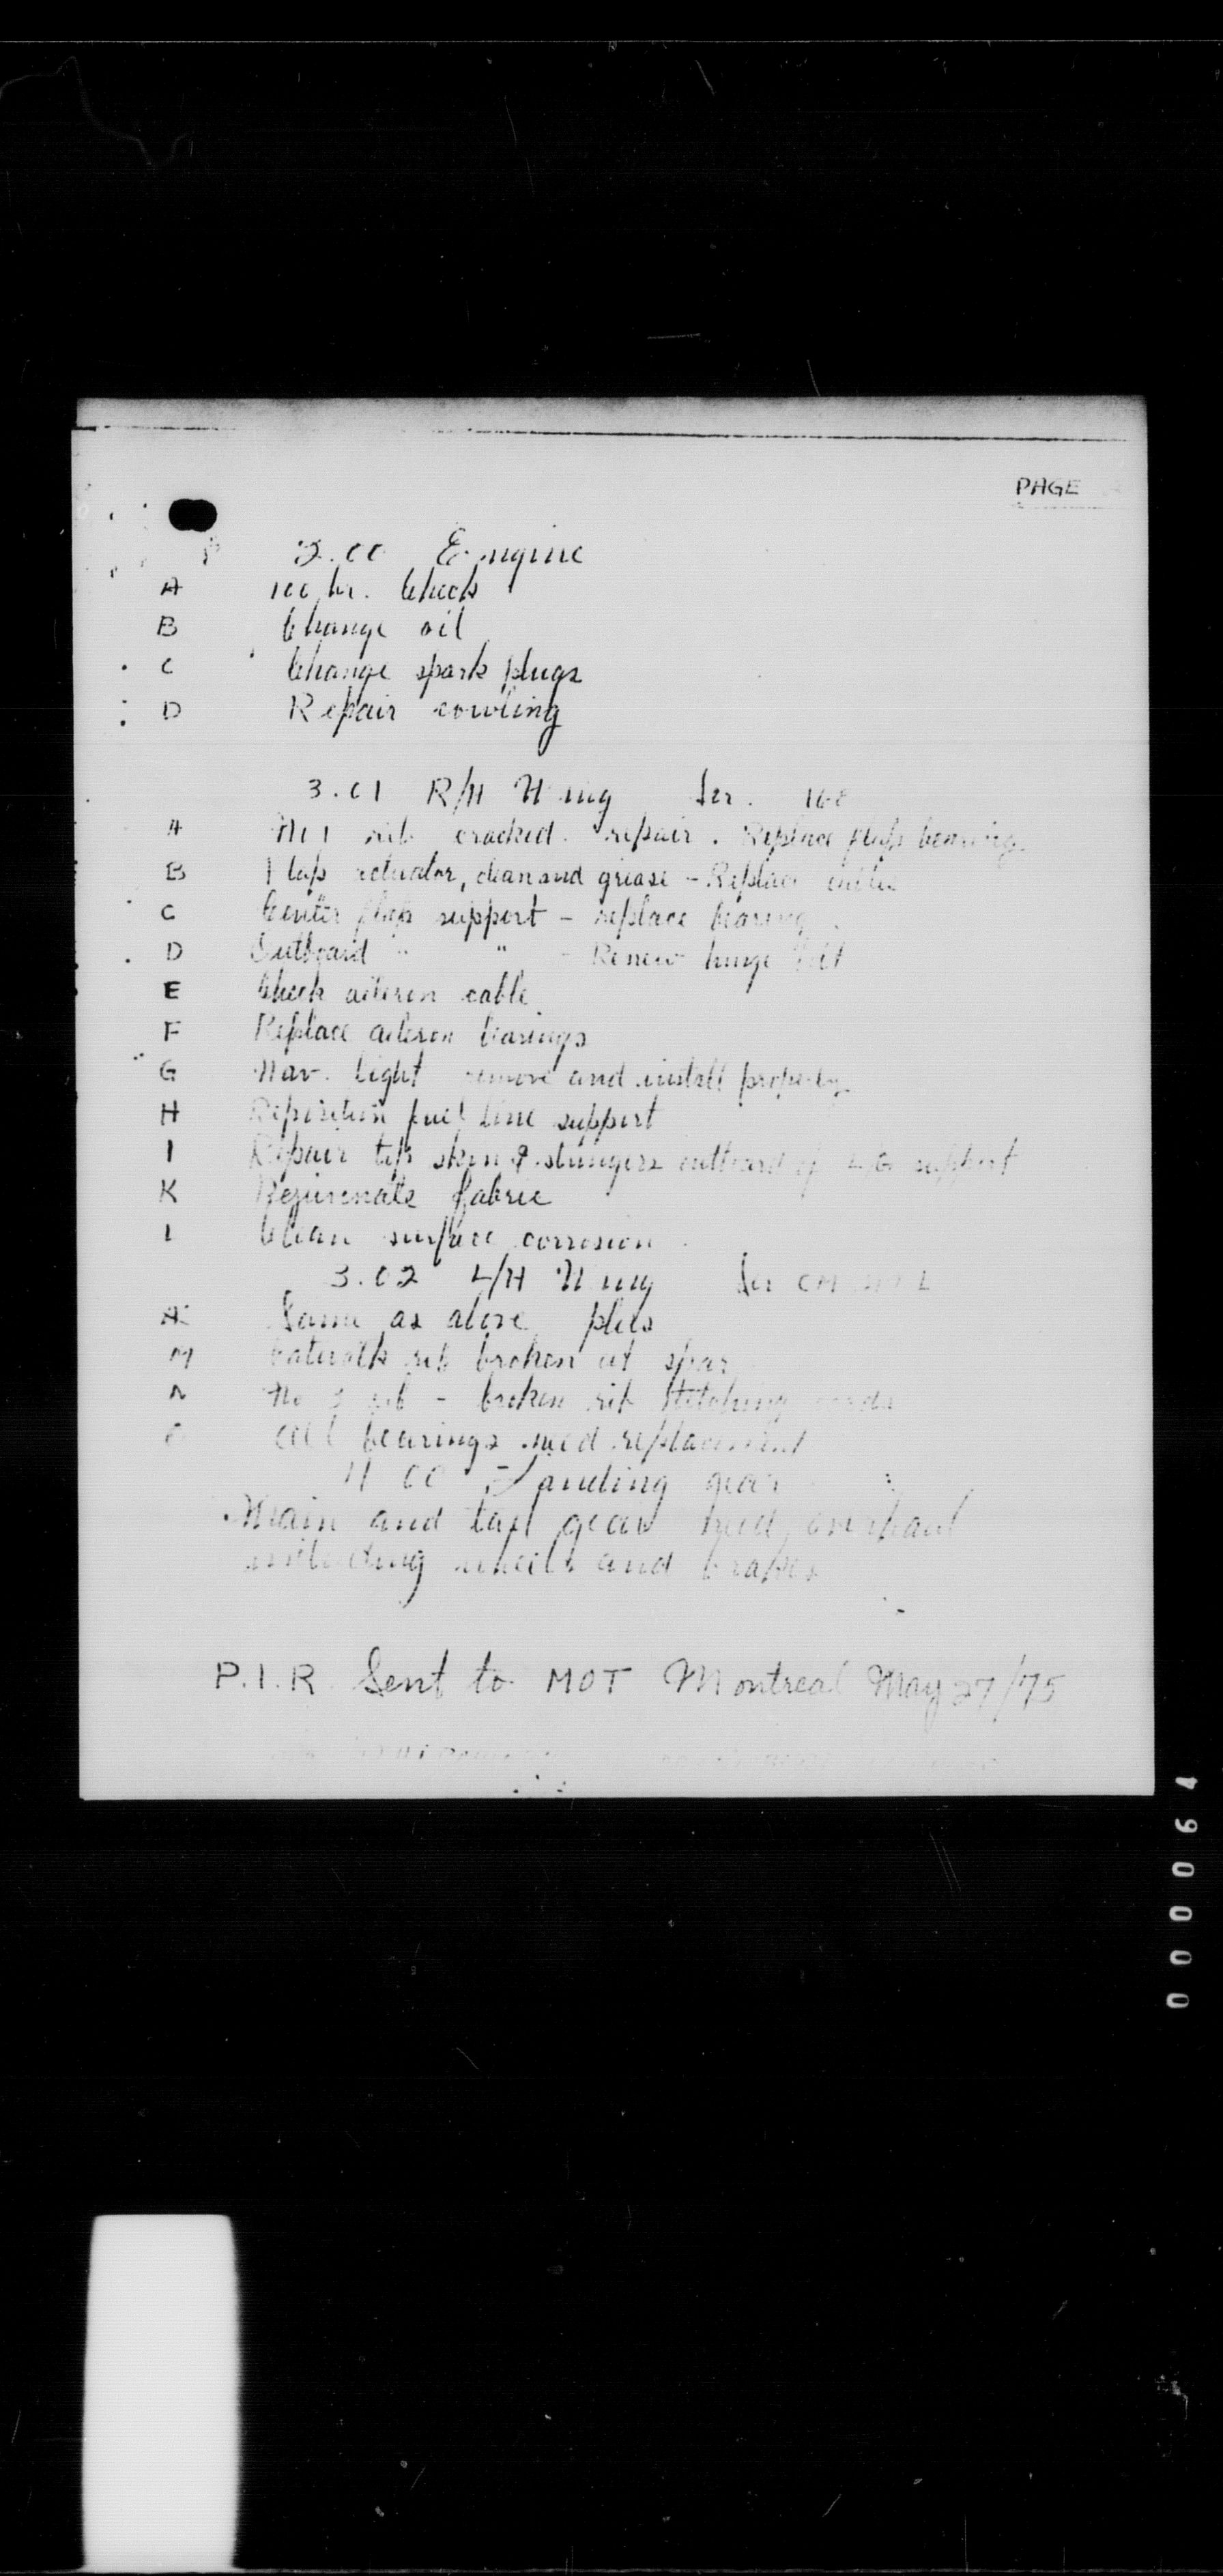 PAGE
2.00 Engine
A 100 hr. Check
B Change oil
C Change spark plugs
D Repair cowling
3.01 R/H Wing Ser. 168
A No 1 rib cracked - repair. Replace flap bearing
B Flap actuator, clean and grease - Replace
C Center flap support - replace bearing
D Outboard " " - Renew hinge bolt
E Check aileron cable
F Replace aileron bearings
G Nav. light remove and install properly
H Reposition fuel line support
I Repair top skin & stringers outboard of L/G support
K Rejuvenate fabric
L Clean surface corrosion
3.02 L/H Wing Ser CM
A Same as above plus
M Catwalk rib broken at spar
N No 3 rib - broken rib stitching
O All bearings need replacement
4.00 Landing gear
Main and tail gear need overhaul
including wheels and brakes
P.I.R. Sent to MOT Montreal May 27/75
000064